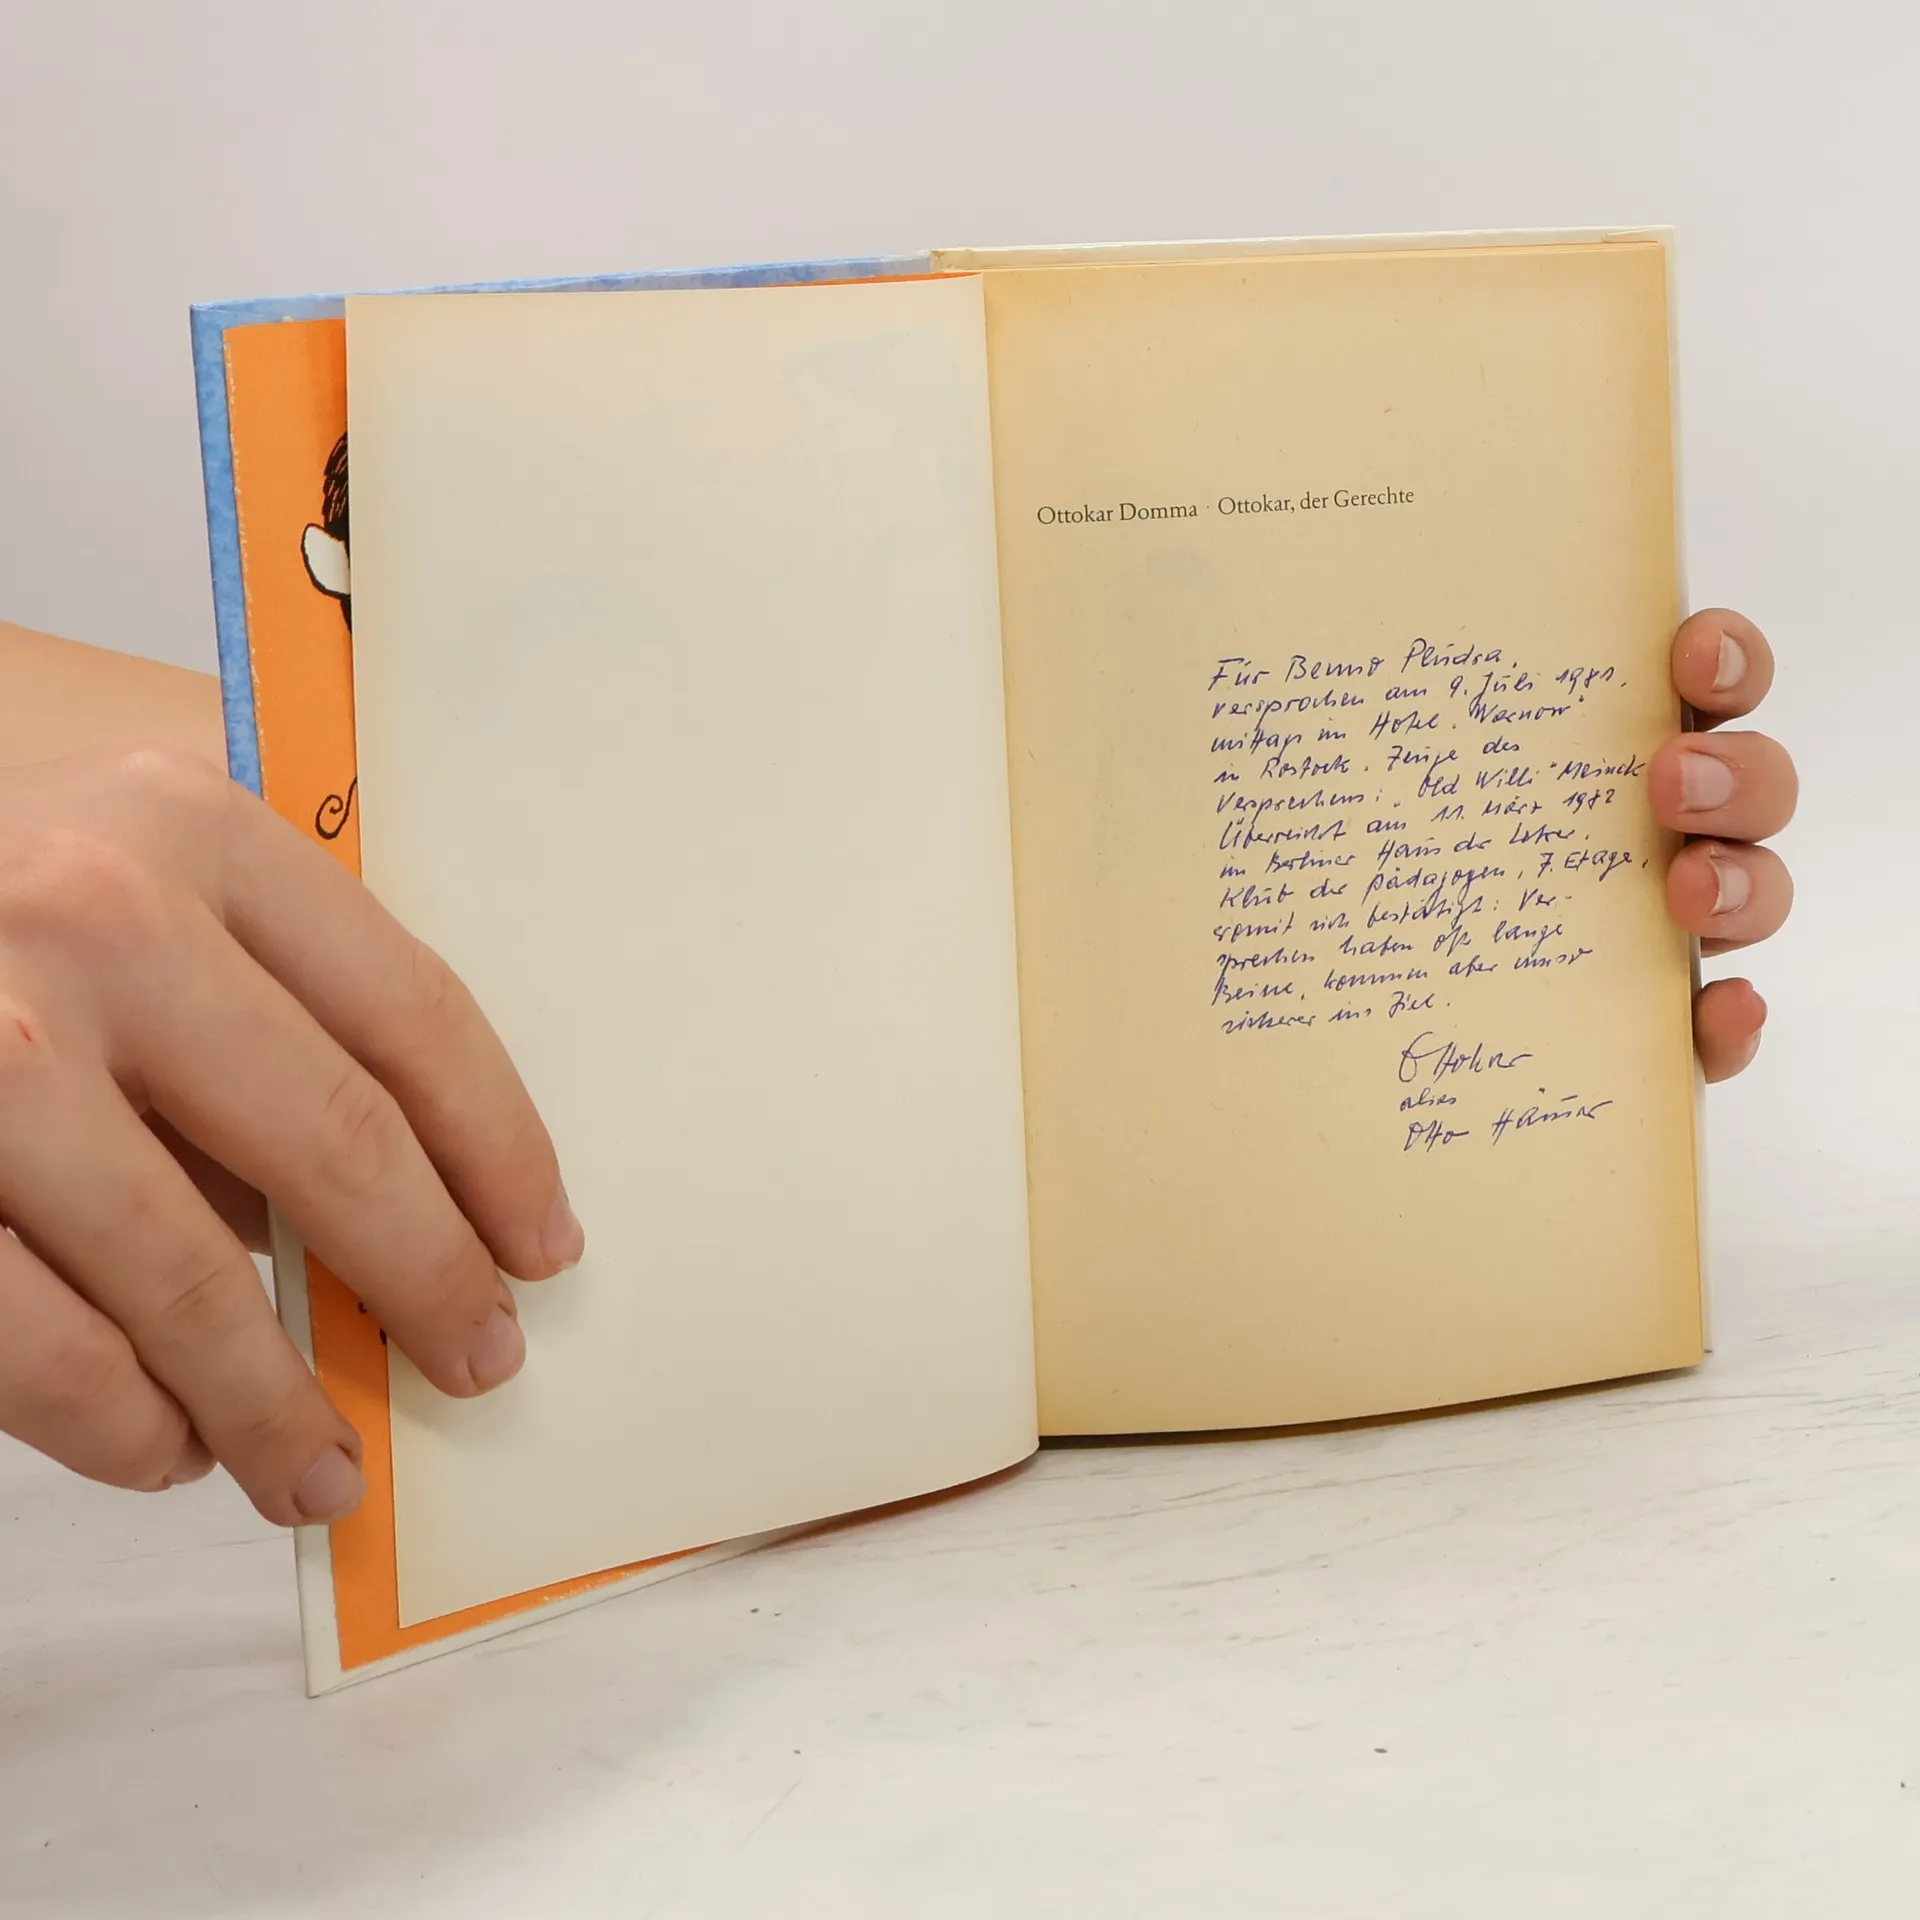 Ottokar Domma · Ottokar, der Gerechte
Für Benno Pludra,
versprochen am 9. Juli 1981,
mittags im Hotel „Warnow"
in Rostock. Zeuge des
Versprechens: „Old Willi" Meinck
Überreicht am 11. März 1982
im Berliner Haus der Lehrer,
Klub der Pädagogen, 7. Etage,
womit sich bestätigt: Ver-
sprechen haben oft lange
Beine, kommen aber umso
sicherer ins Ziel.
Ottokar
alias
Otto Häuser